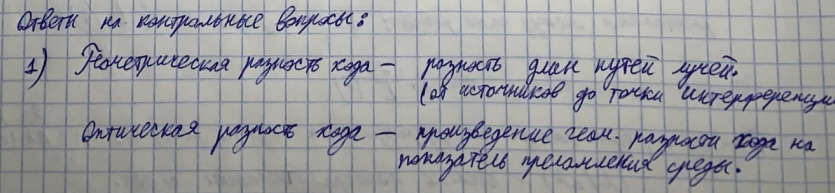 Ответы на контрольные вопросы:
1) Геометрическая разность хода — разность длин путей лучей.
(от источников до точки интерференции
Оптическая разность хода — произведение геом. разности хода на
показатель преломления среды.